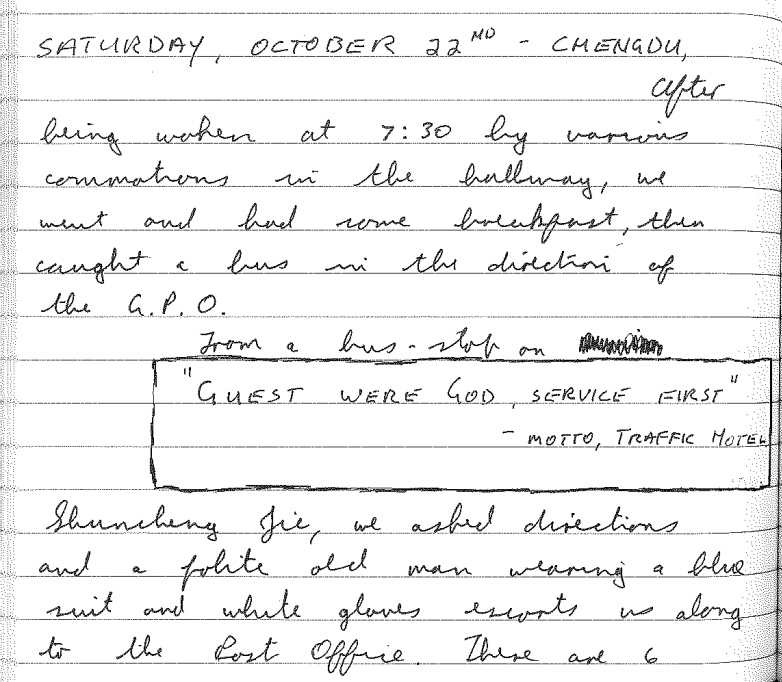 SATURDAY, OCTOBER 22ND - CHENGDU,
After
being woken at 7:30 by various
commotions in the hallway, we
went and had some breakfast, then
caught a bus in the direction of
the G.P.O.
From a bus-stop on
"GUEST WERE GOD, SERVICE FIRST"
- MOTTO, TRAFFIC HOTEL
Shuncheng Jie, we asked directions
and a polite old man wearing a blue
suit and white gloves escorts us along
to the Post Office. There are 6